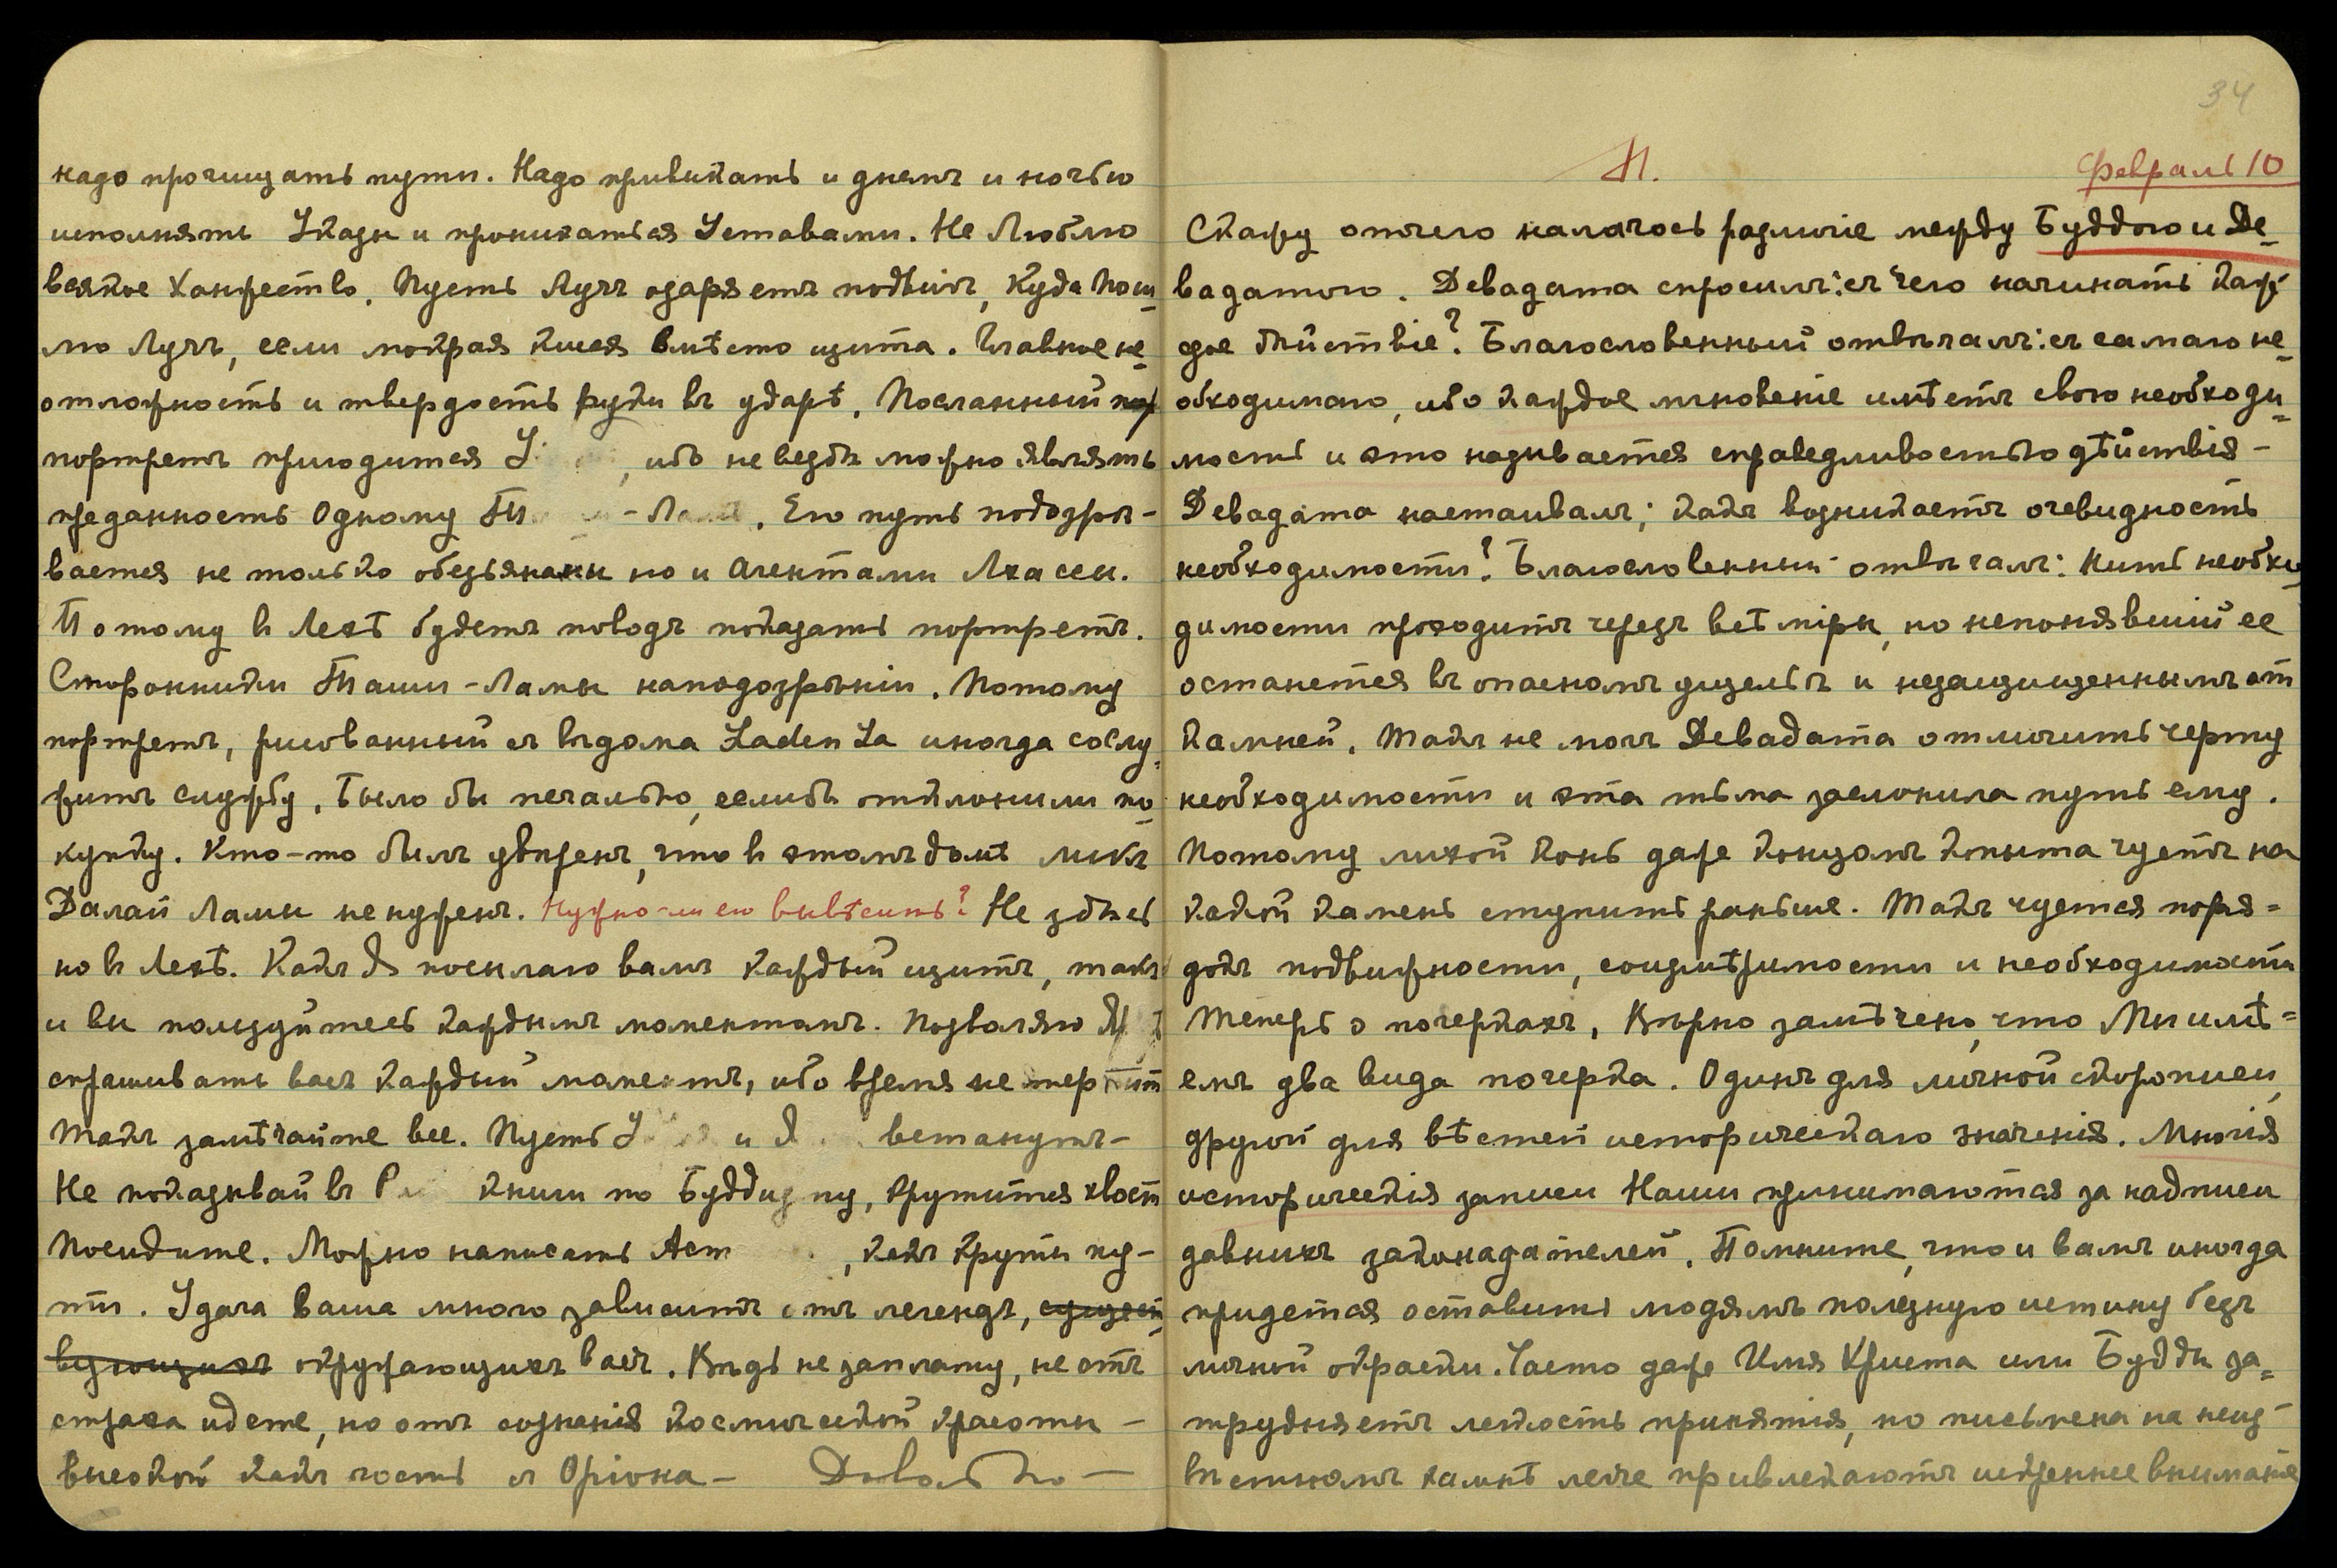 надо прочищать пути. Надо привыкать и днемъ и ночью
исполнять Указы и проникаться Уставами. Не Люблю
всякое ханжество. Пусть Лучъ озаряетъ подвигъ, Куда Пош-
лю Лучъ, если мокрая кисея вмѣсто щита. Главное не-
отложность и твердость руки въ ударѣ. Посланный
портретъ пригодится У , ибо не везде можно являть
преданность Одному Т - Ла . Его путь подозры-
вается не только обезьянами но и агентами Лхасы.
Потому в Лехѣ будетъ поводъ показать портретъ.
Сторонники Таши-Ламы на подозрѣнiи. Потому
портретъ, рисованный съ вѣдома Laden La иногда сослу-
житъ службу. Было бы печально, если бы отклонили по-
купку. Кто-то былъ увѣренъ, что в этомъ домѣ ликъ
Далай Ламы не нуженъ. Нужно-ли его вывѣсить? Не здѣсь
но в Лехѣ. Какъ Я посылаю вамъ каждый щитъ, такъ
и вы пользуйтесь каждымъ моментомъ. Позволяю Я
спрашивать васъ каждый моментъ, ибо время не терпит
Такъ замѣчайте все. Пусть У и Я встанутъ-
Не показывай въ Р книги по Буддизму, крутится хвост
Посидите. Можно написать Аст , какъ круты пу-
ти. Удача ваша много зависитъ отъ легендъ, сущест-
вующихъ окружающихъ васъ. Вѣдь не за плату, не отъ
страха идете, но отъ сознанiя космической красоты -
высокой какъ гость съ Орiона - Довольно -
34
М. Февраль 10
Скажу отчего началось различiе между Буддою и Де-
вадатою. Девадата спросилъ: съ чего начинать каж-
дое дѣйствiе? Благословенный отвѣчалъ: съ самаго не-
обходимаго, ибо каждое мгновенiе имѣетъ свою необходи-
мость и это называется справедливостью дѣйствiя -
Девадата настаивалъ; какъ возникаетъ очевидность
необходимости? Благословенный отвѣчалъ: Нить необхо-
димости проходитъ черезъ всѣ мiры, но непонявшiй ее
останется въ опасномъ ущельѣ и незащищеннымъ от
камней. Такъ не могъ Девадата отличить черту
необходимости и эта тьма заслонила путь ему.
Потому лихой конь даже концомъ копыта чуетъ на
какой камень ступить раньше. Такъ чуется поря-
докъ подвижности, соизмѣримости и необходимости
Теперь о почеркахъ, Вѣрно замѣчено, что Мы имѣ-
емъ два вида почерка. Одинъ для личной скорописи,
другой для вѣстей историческаго значенiя. Многiя
историческiя записи Наши принимаются за надписи
давнихъ законадателей. Помните, что и вамъ иногда
придется оставить людямъ полезную истину безъ
личной окраски. Часто даже Имя Христа или Будды за-
трудняетъ легкость принятiя, но письмена на неиз-
вѣстномъ камнѣ легче привлекаютъ искреннее вниманiе